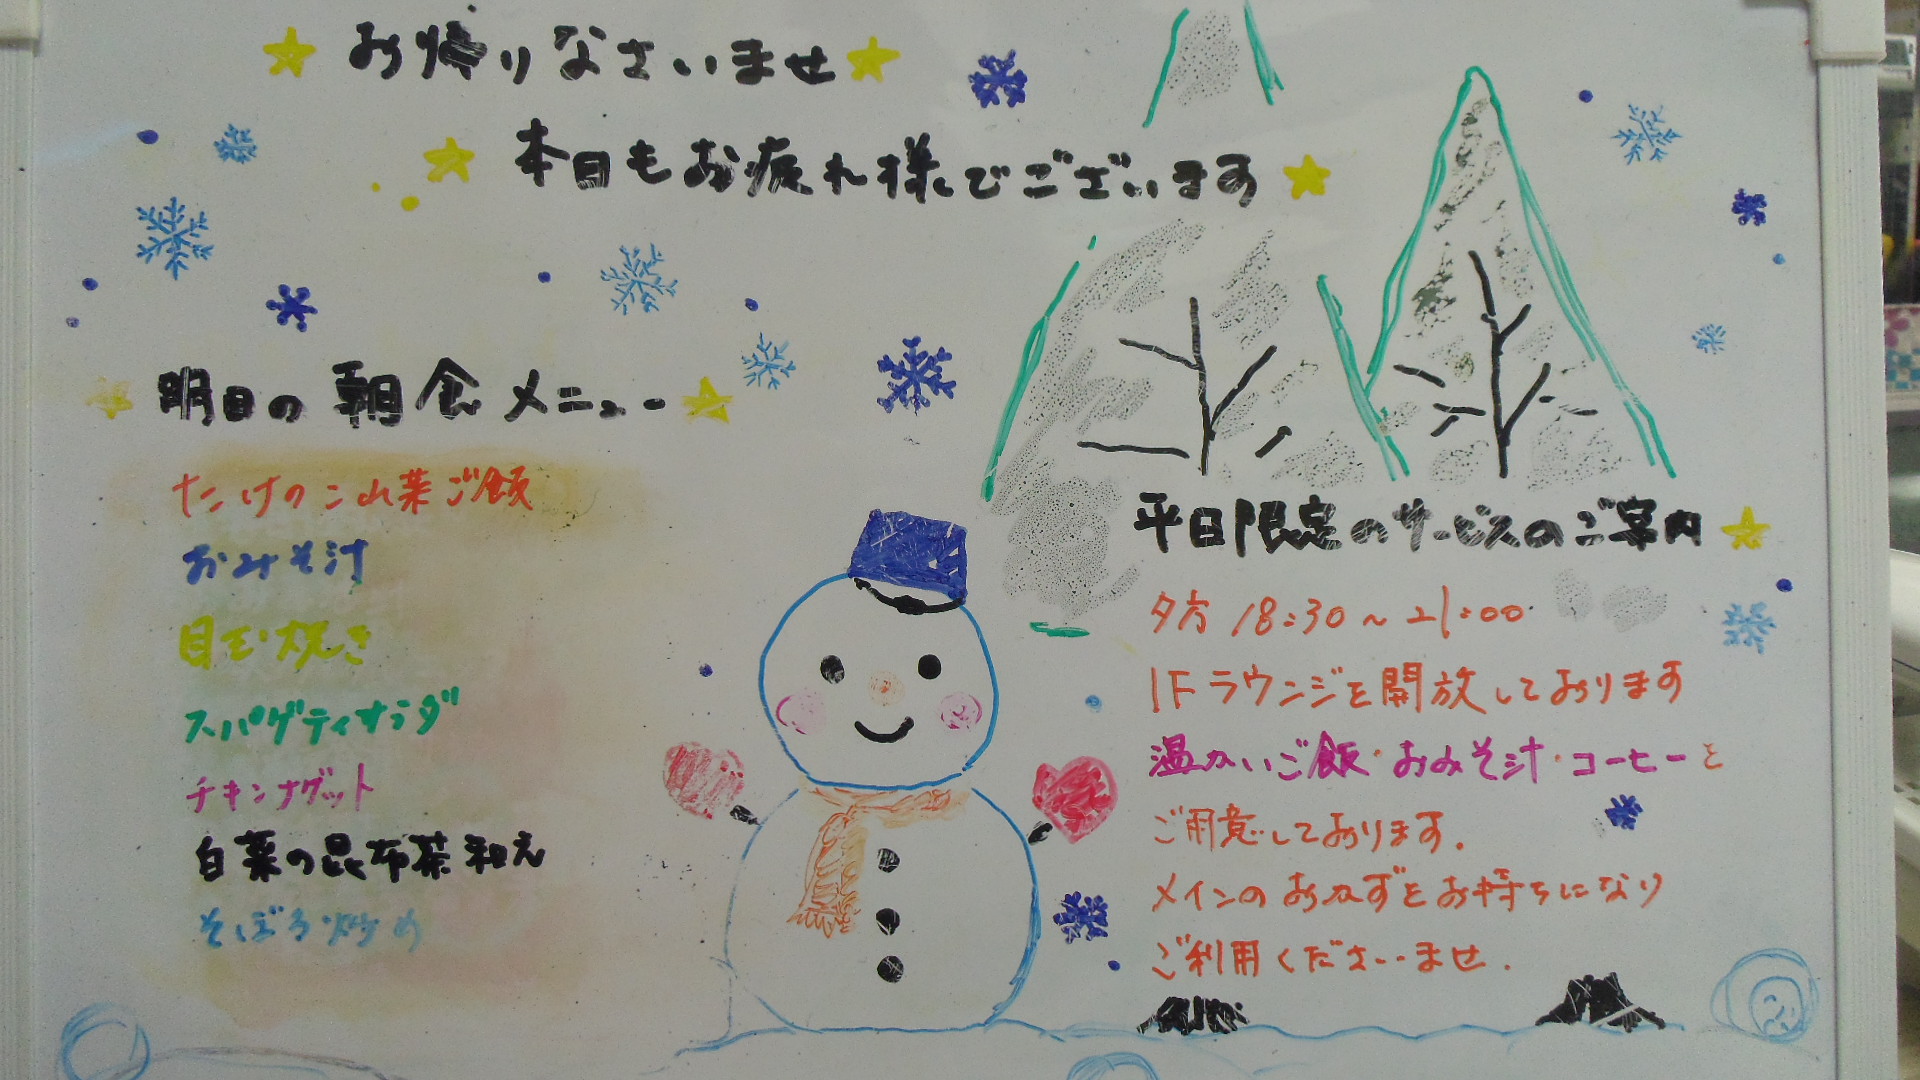 お帰りなさいませ
本日もお疲れ様でございます
明日の朝食メニュー
たけのこ山菜ご飯
おみそ汁
目玉焼き
スパゲティサラダ
チキンナゲット
白菜の昆布茶和え
そぼろ炒め
平日限定のサービスのご案内
夕方 18:30~21:00
1Fラウンジを開放しております
温かいご飯・おみそ汁・コーヒーを
ご用意しております.
メインのおかずをお持ちになり
ご利用くださいませ.